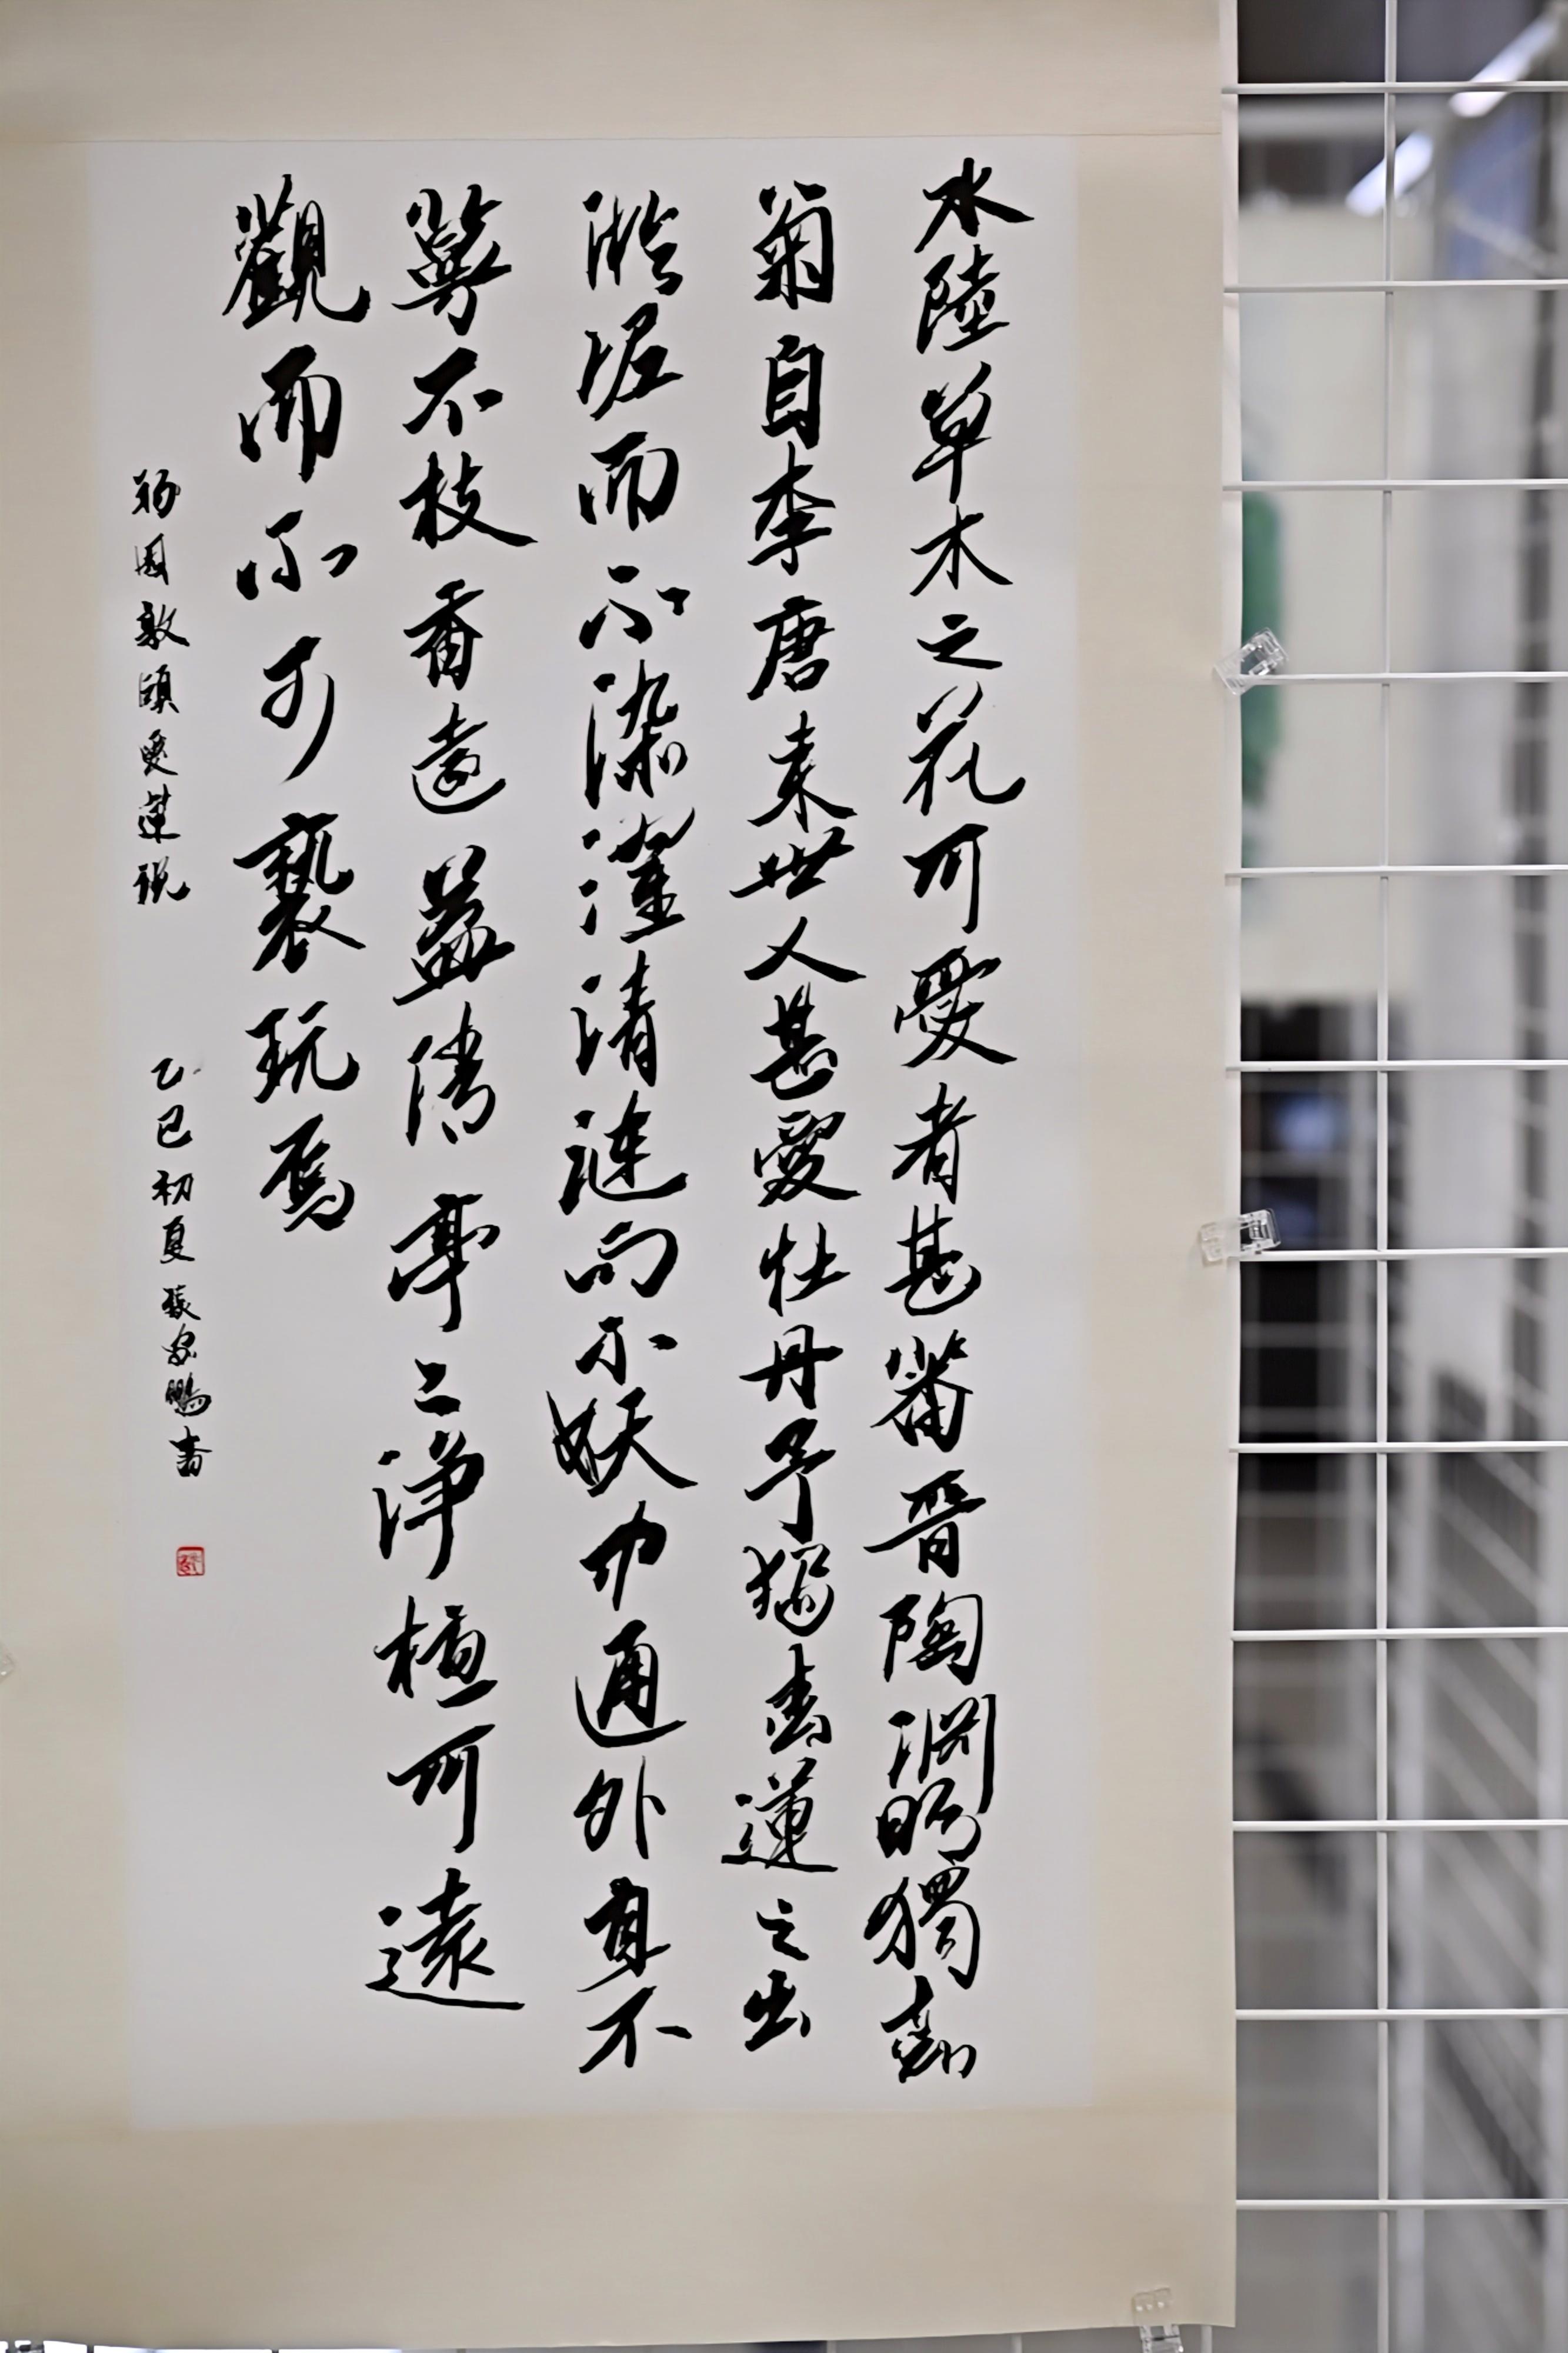 水陸草木之花可愛者甚蕃晉陶淵明獨愛
菊自李唐来世人甚愛牡丹予獨愛蓮之出
淤泥而不染濯清漣而不妖中通外直不
蔓不枝香遠益清亭〻淨植可遠
觀而不可褻玩焉
周敦頤愛蓮説
乙巳初夏張鵬書